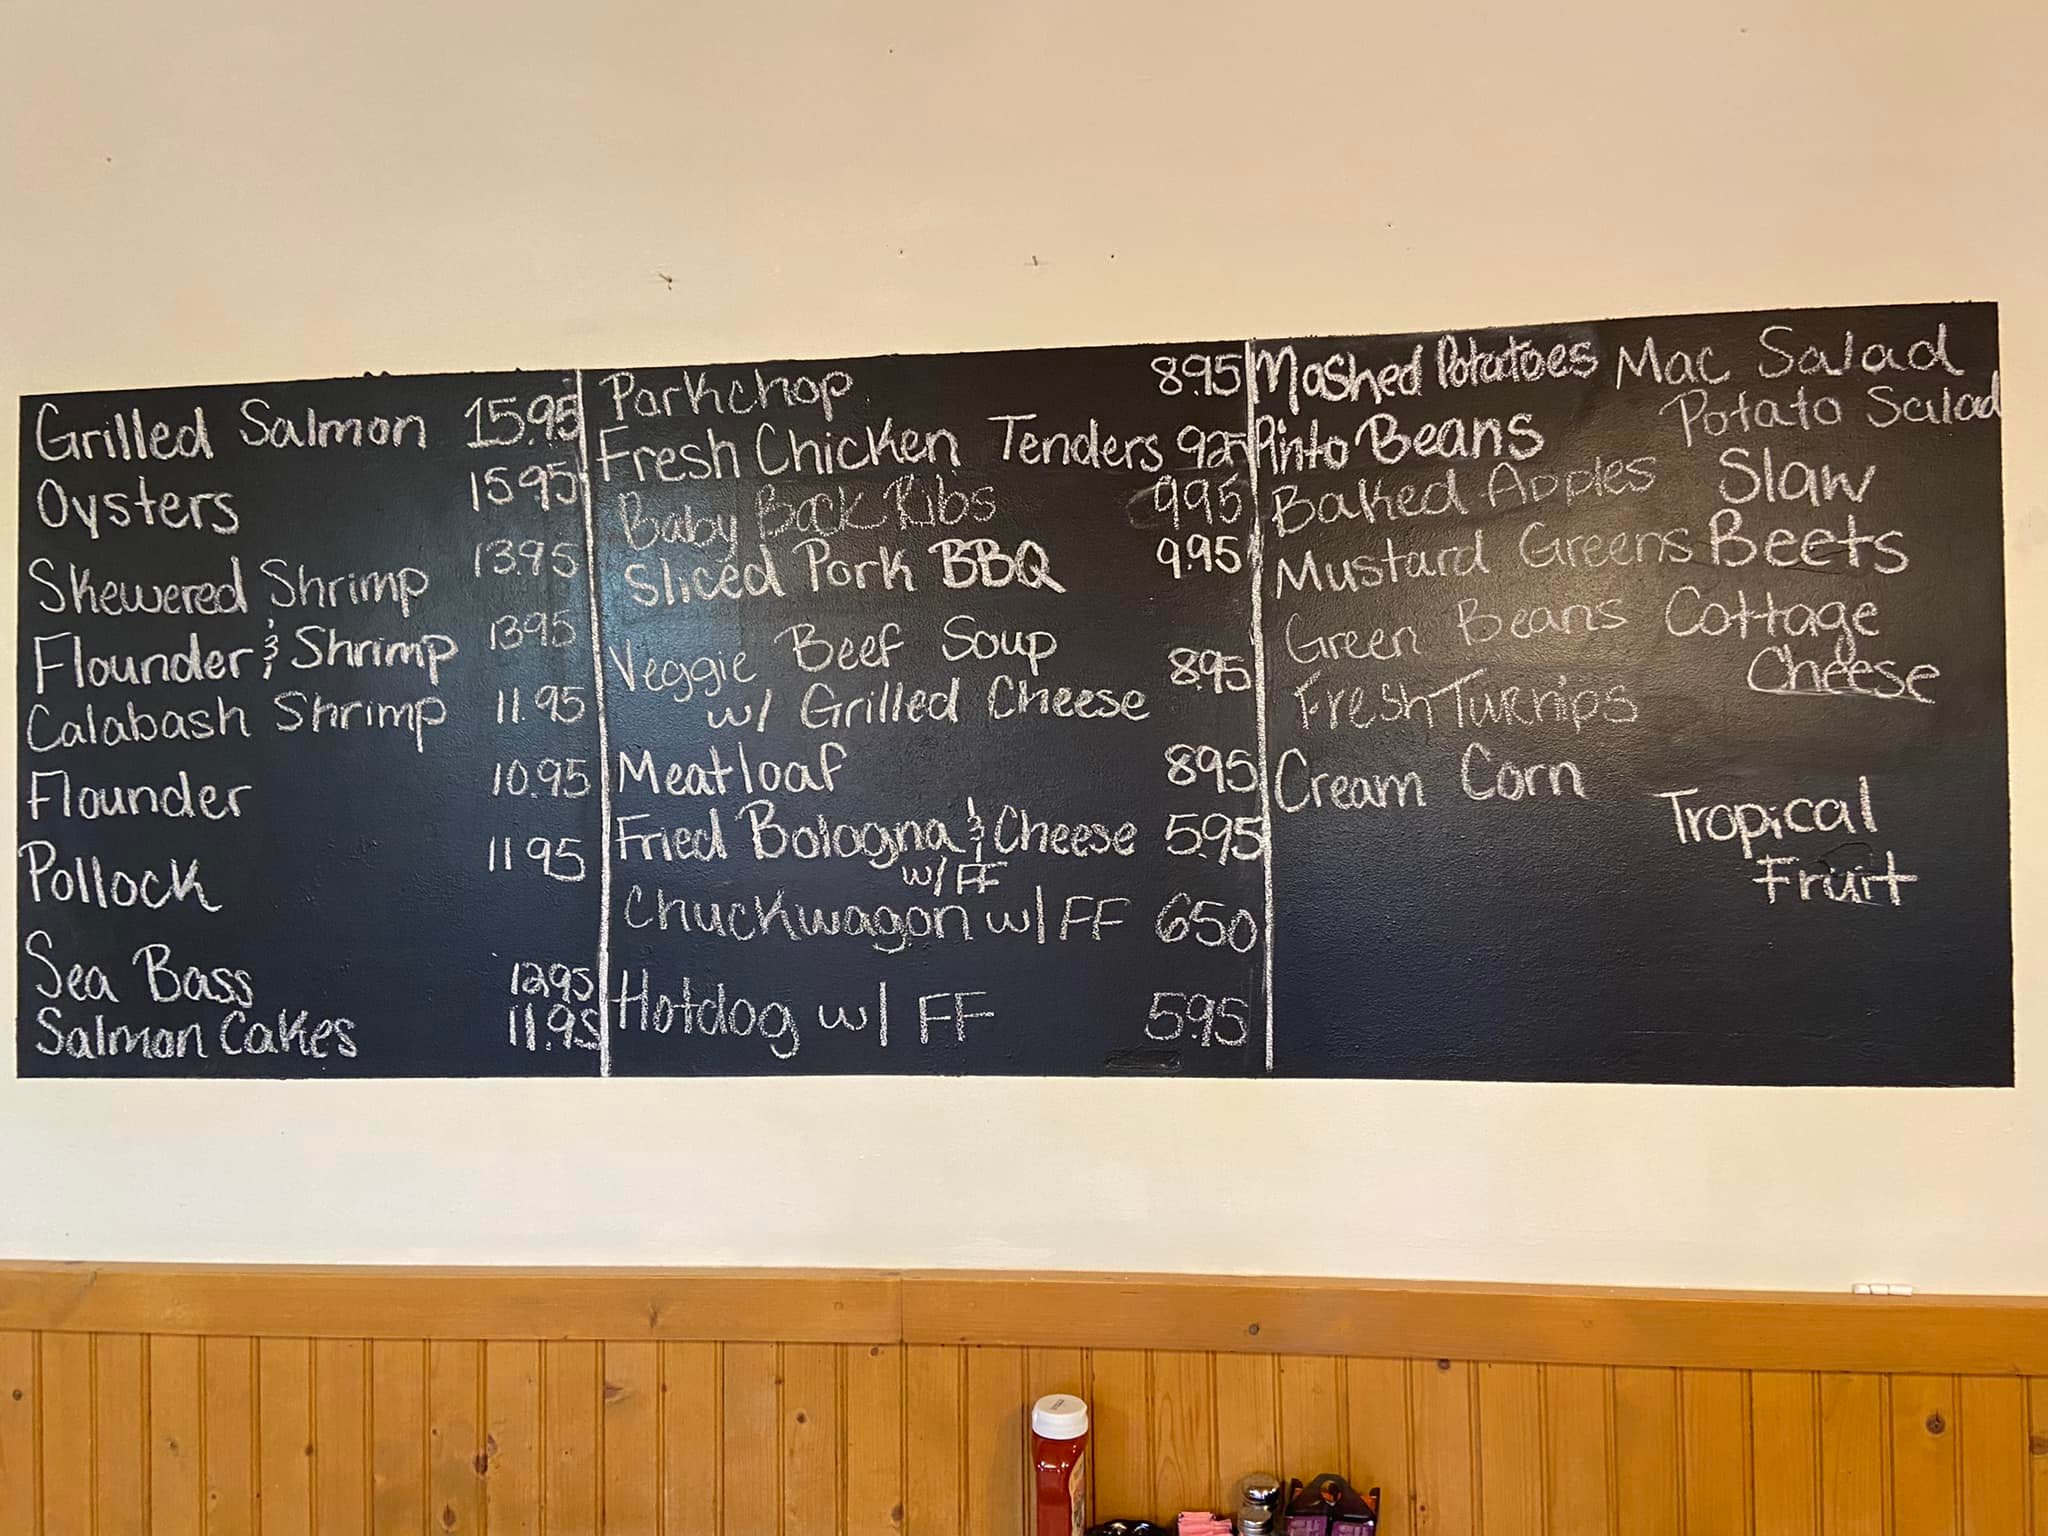 Grilled Salmon 15.95
Oysters 15.95
Skewered Shrimp 13.95
Flounder & Shrimp 1395
Calabash Shrimp 11.95
Flounder 10.95
Pollock 11 95
Sea Bass 1295
Salmon Cakes 11.95
Porkchop 8.95
Fresh Chicken Tenders 925
Baby Back Ribs 995
Sliced Pork BBQ 9.95
Veggie Beef Soup 8.95
w/ Grilled Cheese
Meatloaf 895
Fried Bologna & Cheese 5.95
w/ FF
Chuckwagon w/ FF 650
Hotdog w/ FF 5.95
Mashed Potatoes
Pinto Beans
Baked Apples
Mustard Greens
Green Beans
Fresh Turnips
Cream Corn
Mac Salad
Potato Salad
Slaw
Beets
Cottage
Cheese
Tropical
Fruit